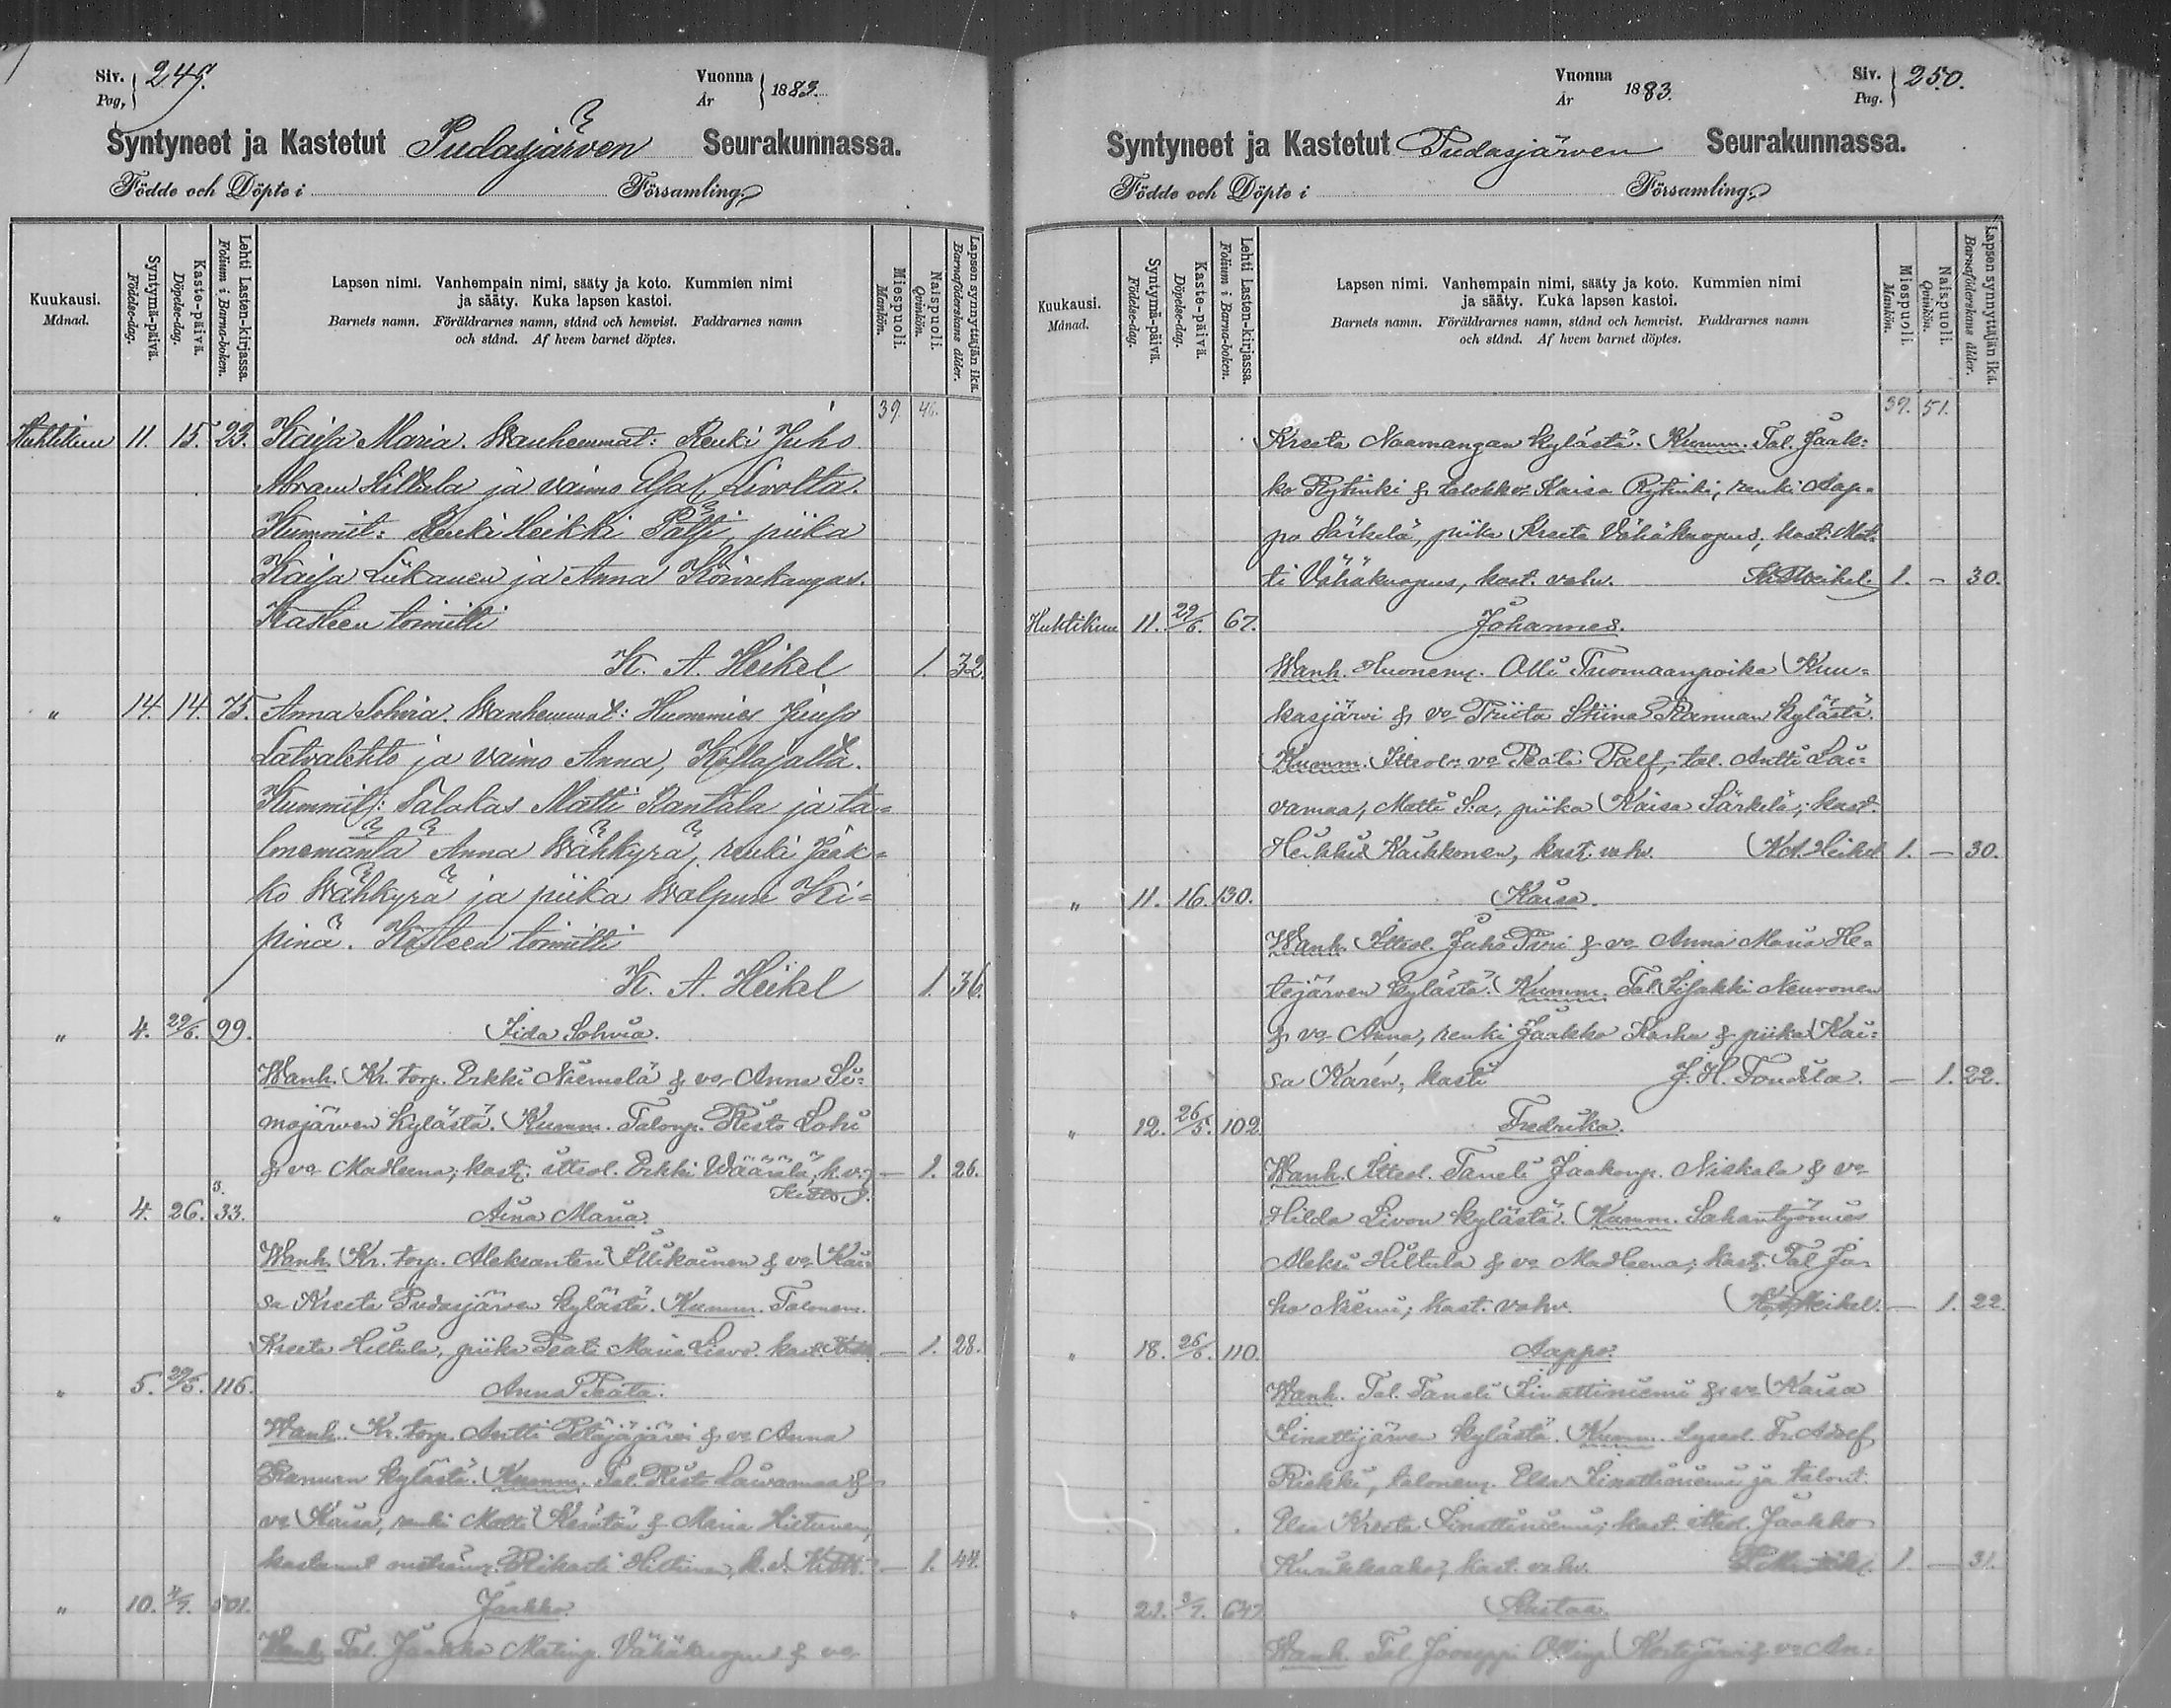 Siv. Pag. 249. Vuonna År 1883.
Syntyneet ja Kastetut Pudasjärven Seurakunnassa.
Födde och Döpte i Församling.
Kuukausi. Månad.
Syntymä-päivä. Födelse-dag.
Kaste-päivä. Döpelse-dag.
Lehti Lasten-kirjassa. Folium i Barna-boken.
Lapsen nimi. Vanhempain nimi, sääty ja koto. Kummien nimi
ja sääty. Kuka lapsen kastoi.
Barnets namn. Föräldrarnes namn, stånd och hemvist. Faddrarnes namn
och stånd. Af hvem barnet döptes.
Miespuoli. Mankön.
Naispuoli. Qvinkön.
Lapsen synnyttäjän ikä. Barnaföderskans ålder.
39. 46.
Huhtikuu 11. 15. 23. Kaisa Maria. Wanhemmat: Renki Juho
Abram Hiltula ja vaimo Elsa, Livolta.
Kummit: Renki Heikki Pätsi, piika
Kaisa Liikanen ja Anna Koivukangas.
Kasteen toimitti
K. A. Heikel 1. 32.
" 14. 14. 75. Anna Sohvia. Wanhemmat: Huonemies Juuso
Latvalehto ja vaimo Anna, Kollajalta.
Kummit: Talokas Matti Rantala ja ta-
lonemäntä Anna Wähkyrä, renki Jaak-
ko Wähkyrä ja piika Walpuri Ki-
pinä. Kasteen toimitti
K. A. Heikel 1. 36.
" 4. 29/6. 99. Iida Sohvia.
Wanh. Kr. torp. Erkki Niemelä & vo Anna Si-
mojärven kylästä. Kumm. Talonp. Risto Lohi
& vo Madleena; kast. ittsel. Erkki Määttälä, k.v. — 1. 26.
" 4. 26. 33. Aina Maria.
Wanh. Kr. torp. Aleksanteri Illikainen & vo Kai-
sa Kreeta Pudasjärven kylästä. Kumm. Talonem.
Kreeta Hiltula, piika Peati Maria Livo. kast. — 1. 28.
" 5. 29/6. 116. Anna Peata.
Wanh. Kr. torp. Antti Petäjäjärvi & vo Anna
Ranuan kylästä. Kumm. Tal. Risto Laivamaa &
vo Kaisa, renki Matti & Maria Hiltunen,
kastanut Rikarti Hiltunen, k. v. — 1. 44.
" 10. 4/7. 501. Jaakko.
Wanh. Tal. Jaakko Matinp. Vähäkuopus & vo
Vuonna År 1883. Siv. Pag. 250.
Syntyneet ja Kastetut Pudasjärven Seurakunnassa.
Födde och Döpte i Församling.
Kuukausi. Månad.
Syntymä-päivä. Födelse-dag.
Kaste-päivä. Döpelse-dag.
Lehti Lasten-kirjassa. Folium i Barna-boken.
Lapsen nimi. Vanhempain nimi, sääty ja koto. Kummien nimi
ja sääty. Kuka lapsen kastoi.
Barnets namn. Föräldrarnes namn, stånd och hemvist. Faddrarnes namn
och stånd. Af hvem barnet döptes.
Miespuoli. Mankön.
Naispuoli. Qvinkön.
Lapsen synnyttäjän ikä. Barnaföderskans ålder.
39. 51.
Kreeta Naamangan kylästä. Kumm. Tal. Jaak-
ko Rytinki & Kaisa Rytinki, renki Aap-
po Särkelä, piika Kreeta Vähäkuopus, kast. Mat-
ti Vähäkuopus, kast. vahv. K. A. Heikel. 1. — 30.
Huhtikuu 11. 29/6. 67. Johannes.
Wanh. Huonem. Olli Tuomaanpoika Kuu-
kasjärvi & vo Friita Stiina Ranuan kylästä.
Kumm. Ittsel. vo Peata Palf, tal. Antti Lai-
vamaa, Matti S:a, piika Kaisa Särkelä; kast.
Heikki Kaikkonen, kast. vahv. K. A. Heikel 1. — 30.
" 11. 16. 130. Kaisa.
Wanh. Ittsel. Juho Puri & vo Anna Maria He-
tejärven kylästä. Kumm. Tal. Iisakki Neuvonen
& vo Anna, renki Jaakko Karhu & piika Kai-
sa Karén; kasti J. H. Tondila. — 1. 22.
" 12. 26/5. 102. Fredrika.
Wanh. Ittsel. Taneli Jaakonp. Niskala & vo
Hilda Livon kylästä. Kumm. Sahantyömies
Aleksi Hiltula & vo Madleena; kast. Tal. Ja-
ko Niemi; kast. vahv. K. A. Heikel. — 1. 22.
" 18. 26/6. 110. Aappo.
Wanh. Tal. Taneli Iinattiniemi & vo Kaisa
Iinattijärven kylästä. Kumm. Fr. Adolf
Riekki, talonem. Elsa Iinattiniemi ja talont.
Elsa Kreeta Iinattiniemi; kast. ittsel. Jaakko
kast. vahv. 1. — 31.
" 21. 3/7. 647. Kustaa.
Wanh. Tal. Jooseppi Ollinp. Kortejärvi & vo An-